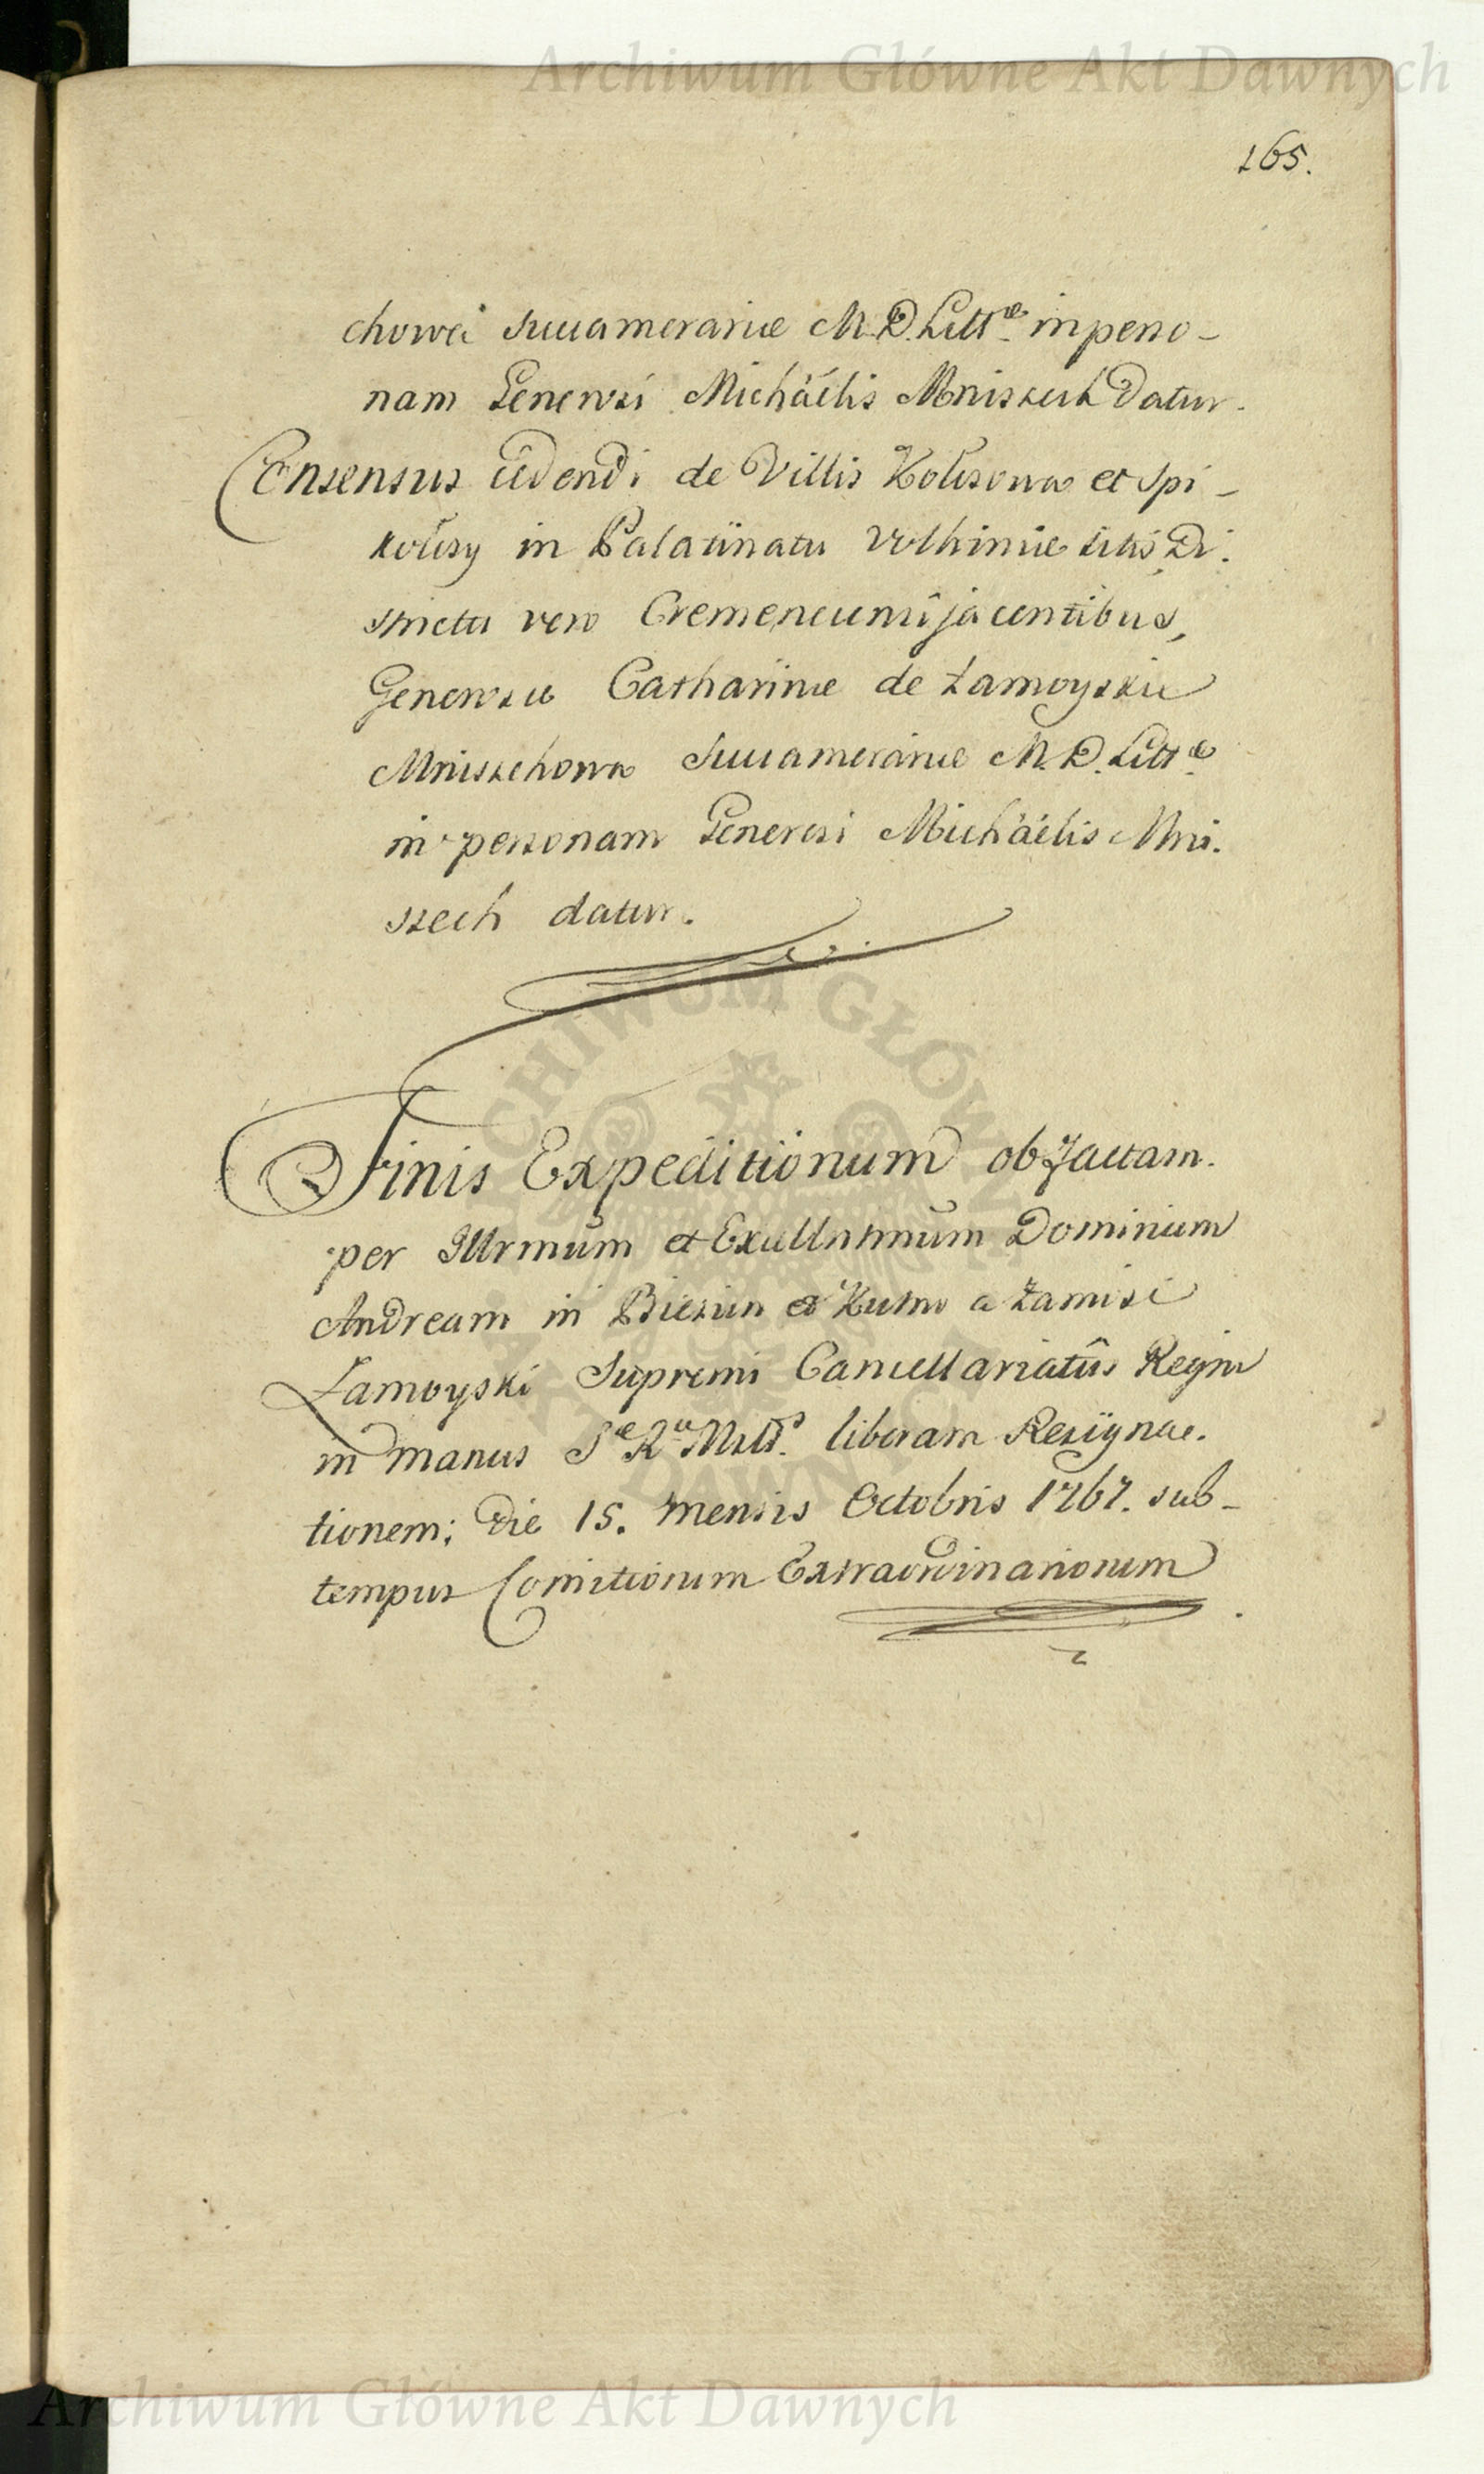 Archiwum Główne Akt Dawnych
165.
chowa Succamerariæ M. D. Littæ in perso-
nam Generosi Michäelis Mniszech datur.
Consensus cedendi de Villis
et Spi-
kolosy in Palatinatu Volhiniæ sitis, Di-
strictu vero Cremenecensi jacentibus,
Generosæ Catharinæ de Zamoyskie
Mniszchowa Succamerariæ M. D. Littæ
in personam Generosi Michäelis Mni-
szech datur.
Finis Expeditionum ob factam
per Illrmum et Excellntmum Dominum
Andream in Biezun et Kutno a Zamisci
Zamoyski Supremi Cancellariatûs Regni
in manus Sæ Ræ Mttis liberam Resigna-
tionem; Die 15. Mensis Octobris 1767. sub-
tempus Comitiorum Extraordinariorum
ARCHIWUM GŁÓWNE
AKT DAWNYCH
Archiwum Główne Akt Dawnych